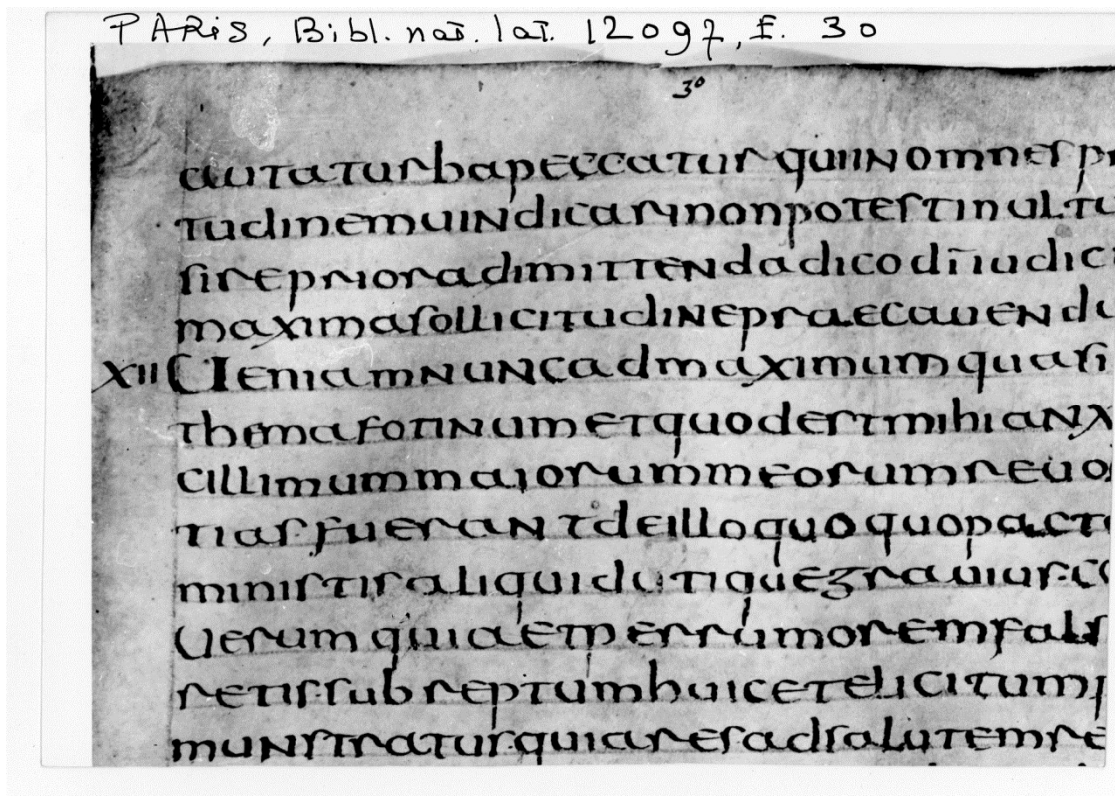 PARIS, Bibl. naī. laī. 12097, f. 30
30
autaturbapeccatur quiinomnes pr
tudinemuindicarinonpotestinultu
sireprioradimittendadicodīiudici
maximasollicitudinepraecauendu
XII Ueniamnuncadmaximumquasi
themafotinumetquodestmihianx
cillimummaiorummeorumreuo
tias fuerantdeilloquoquopacto
ministisaliquidutiquegrauius co
Uerum quiaetperrumoremfals
retissubreptumhuicetelicitum
munstratur quiaresadsalutemre